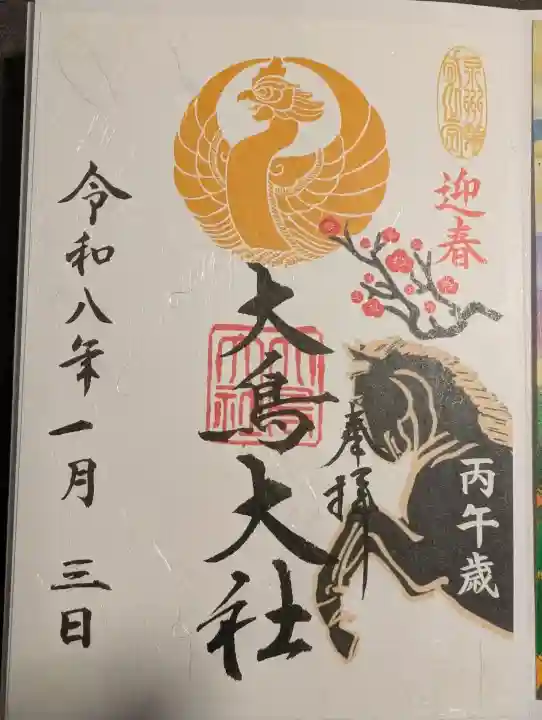 迎春
丙午歳
奉拝
大鳥大社
令和八年一月三日